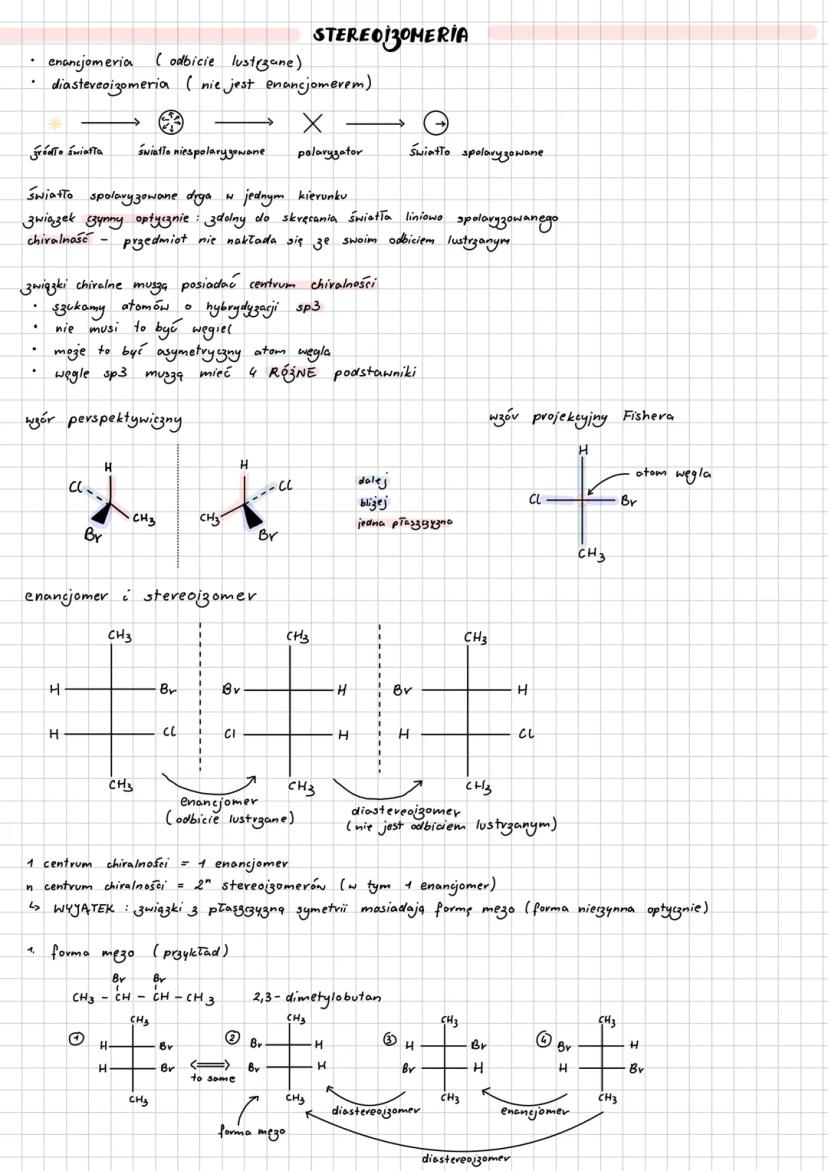 STEREOIZOMERIA
• enancjomeria ( odbicie lustrzane)
• diastereoizomeria ( nie jest enancjomerem)
źródło światła światło niespolaryzowane polaryzator światło spolaryzowane
światło spolaryzowane drga w jednym kierunku
związek czynny optycznie : zdolny do skręcania światła liniowo spolaryzowanego
chiralność – przedmiot nie nakłada się ze swoim odbiciem lustrzanym
związki chiralne muszą posiadać centrum chiralności
• szukamy atomów o hybrydyzacji sp3
• nie musi to być węgiel
• może to być asymetryczny atom węgla
• węgle sp3 muszą mieć 4 RÓŻNE podstawniki
wzór perspektywiczny wzór projekcyjny Fishera
H H H
Cl Cl dalej atom węgla
bliżej Cl Br
CH3 CH3 jedna płaszczyzna
Br Br CH3
enancjomer i stereoizomer
CH3 CH3 CH3
H Br Br H Br H
H Cl Cl H H Cl
CH3 CH3 CH3
enancjomer diastereoizomer
( odbicie lustrzane) (nie jest odbiciem lustrzanym)
1 centrum chiralności = 1 enancjomer
n centrum chiralności = 2ⁿ stereoizomerów (w tym 1 enancjomer)
↳ WYJĄTEK : związki z płaszczyzną symetrii masiadają formę mezo (forma nieczynna optycznie)
1. forma mezo ( przykład)
Br Br
CH3 – CH – CH – CH3 2,3- dimetylobutan
CH3 CH3 CH3 CH3
① H Br ② Br H ③ H Br ④ Br H
H Br Br H Br H H Br
to samo
CH3 CH3 CH3 CH3
diastereoizomer enancjomer
forma mezo
diastereoizomer